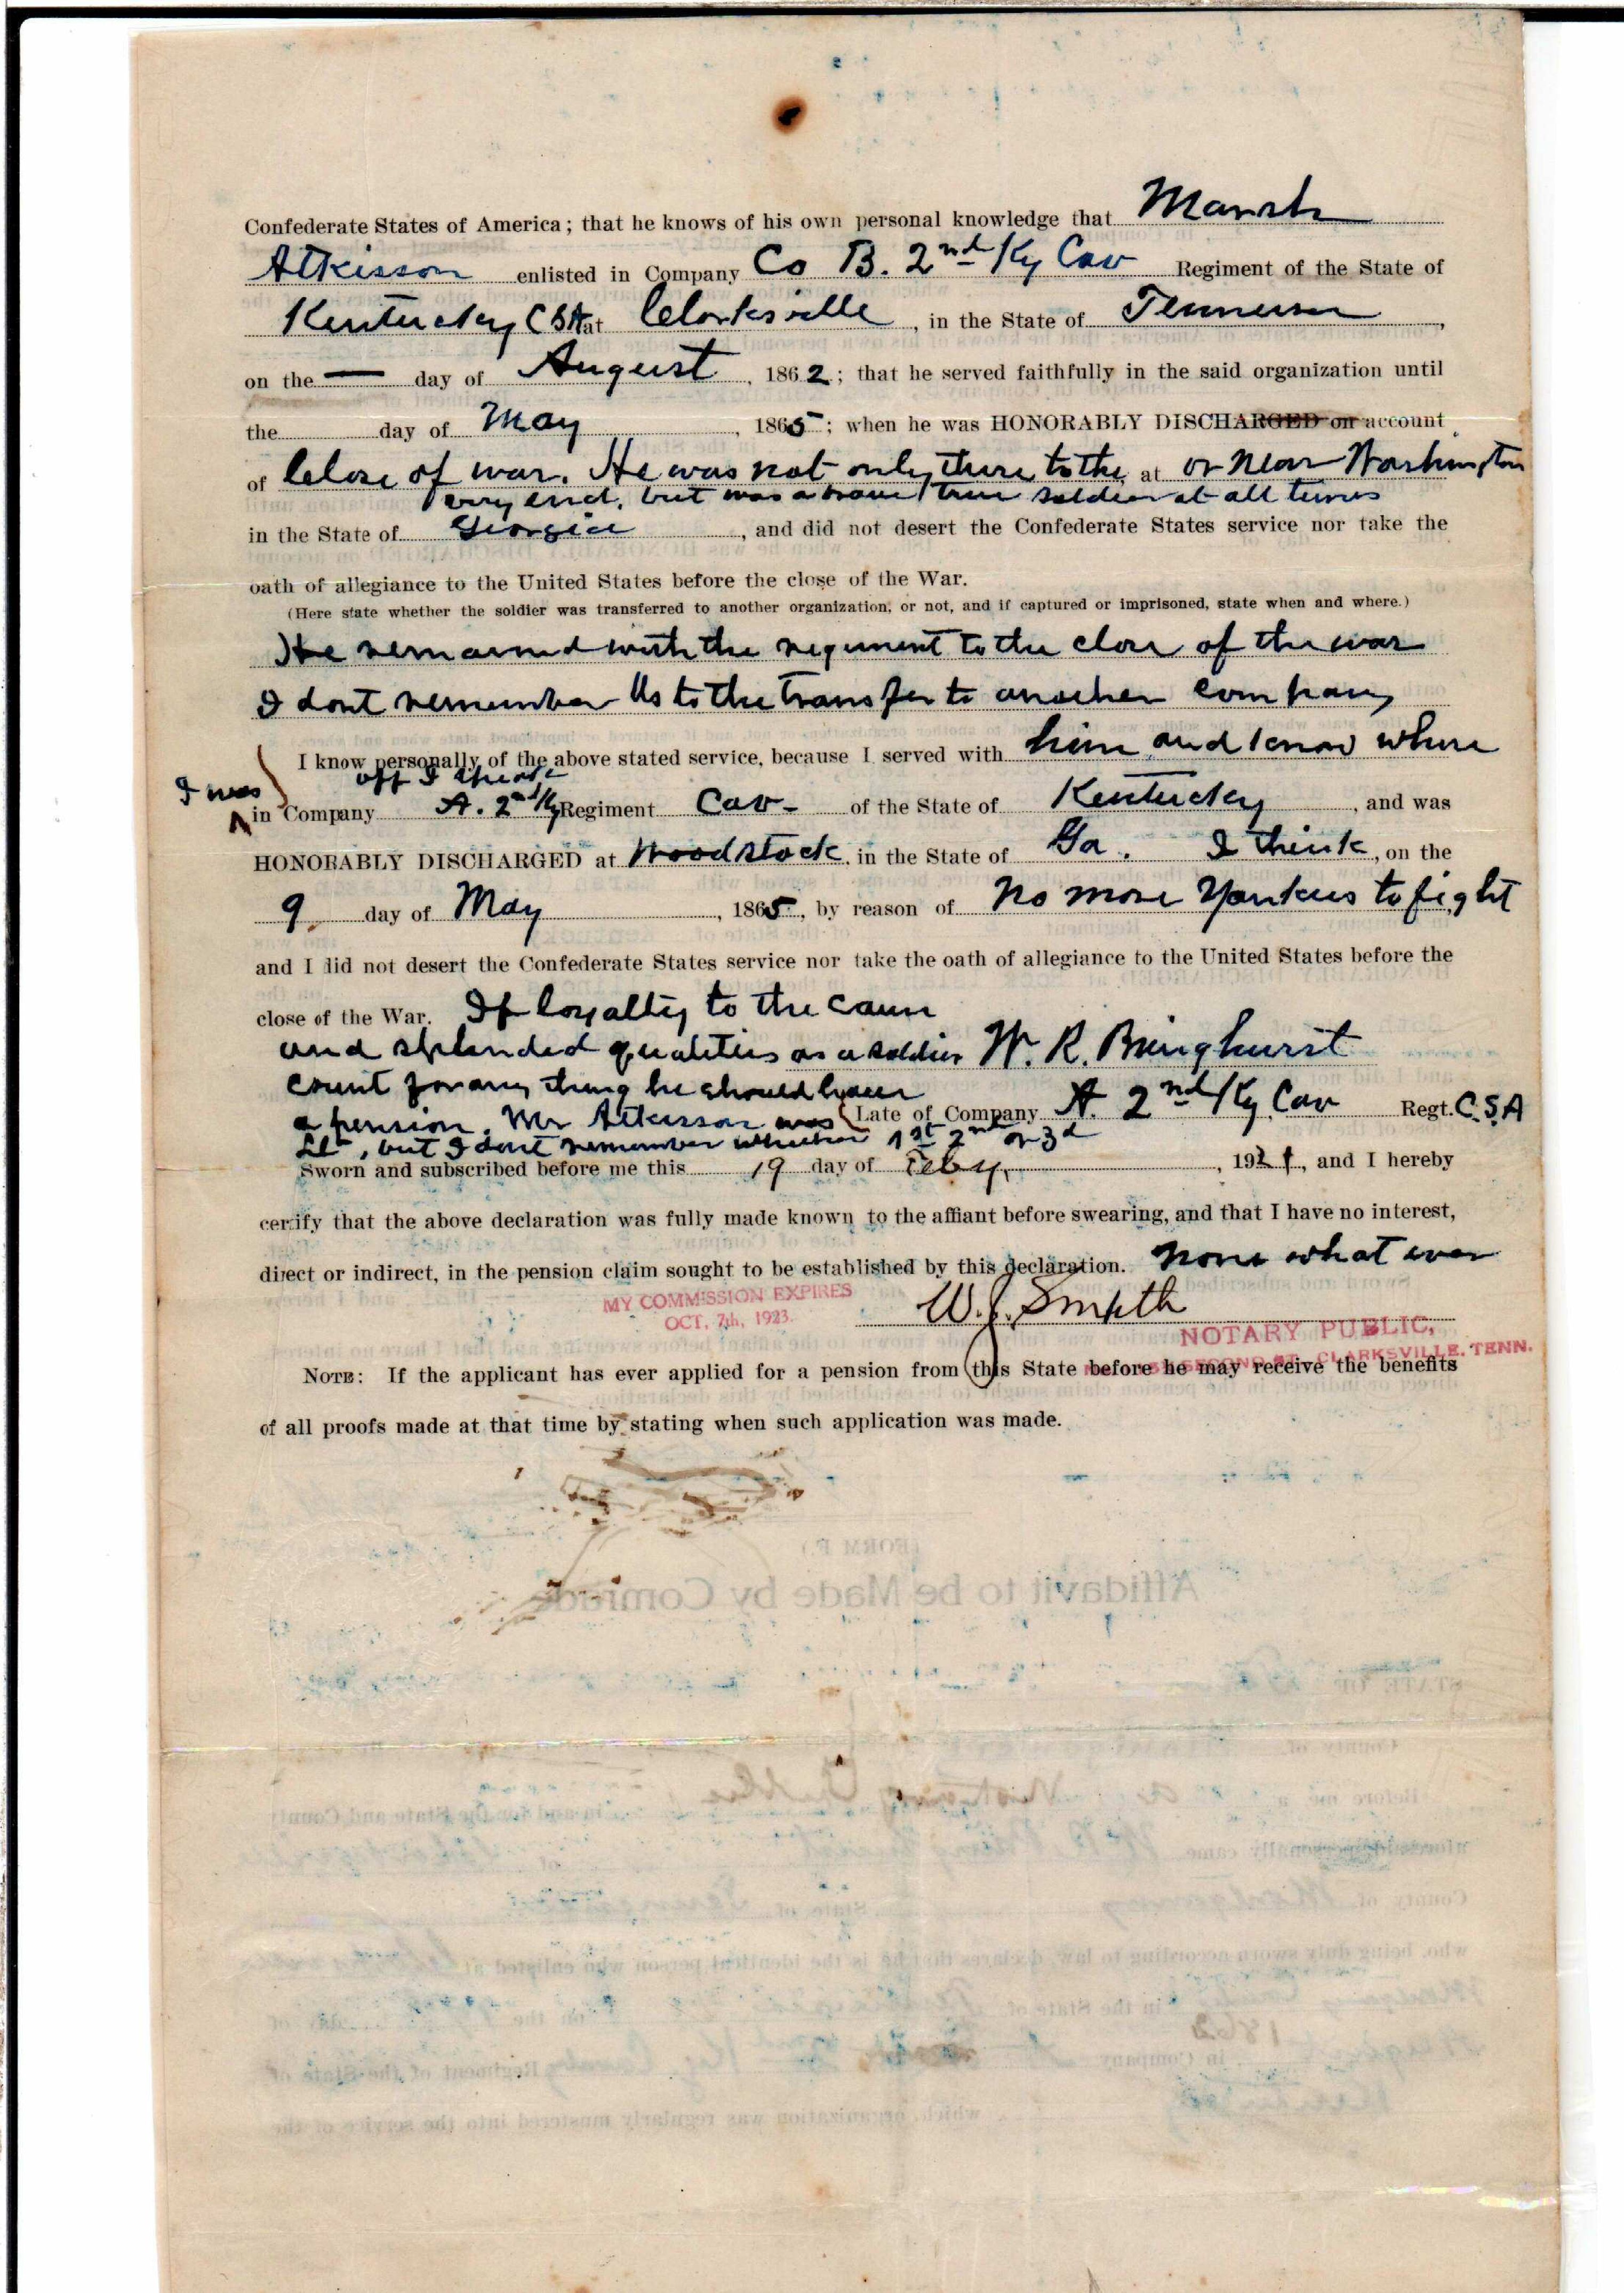 Confederate States of America; that he knows of his own personal knowledge that Marsh
Atkisson enlisted in Company Co B. 2nd Ky Cav Regiment of the State of
Kentucky CSA at Clarksville, in the State of Tennessee,
on the — day of August, 1862; that he served faithfully in the said organization until
the day of May, 1865; when he was HONORABLY DISCHARGED on account
of Close of war. He was not only there to the at or near Washington
very end, but was a brave true soldier at all times
in the State of Georgia, and did not desert the Confederate States service nor take the
oath of allegiance to the United States before the close of the War.
(Here state whether the soldier was transferred to another organization, or not, and if captured or imprisoned, state when and where.)
He remained with the regiment to the close of the war
I dont remember as to the transfer to another company
I know personally of the above stated service, because I served with him and know where
off I speak
I was in Company A. 2nd Ky Regiment Cav- of the State of Kentucky, and was
HONORABLY DISCHARGED at Woodstock, in the State of Ga. I think, on the
9 day of May, 1865, by reason of No more Yankees to fight
and I did not desert the Confederate States service nor take the oath of allegiance to the United States before the
close of the War. If loyalty to the cause
and splended qualities as a soldier W. R. Bringhurst
count for any thing he should have
a pension. Mr Atkisson was Late of Company A. 2nd Ky Cav Regt. C.S.A
Lt, but I dont remember whether 1st 2nd or 3d
Sworn and subscribed before me this 19 day of Feby, 1921, and I hereby
certify that the above declaration was fully made known to the affiant before swearing, and that I have no interest,
direct or indirect, in the pension claim sought to be established by this declaration. None what ever
MY COMMISSION EXPIRES
OCT. 7th, 1923.
W. J. Smith
NOTARY PUBLIC,
SECOND ST. CLARKSVILLE, TENN.
NOTE: If the applicant has ever applied for a pension from this State before he may receive the benefits
of all proofs made at that time by stating when such application was made.